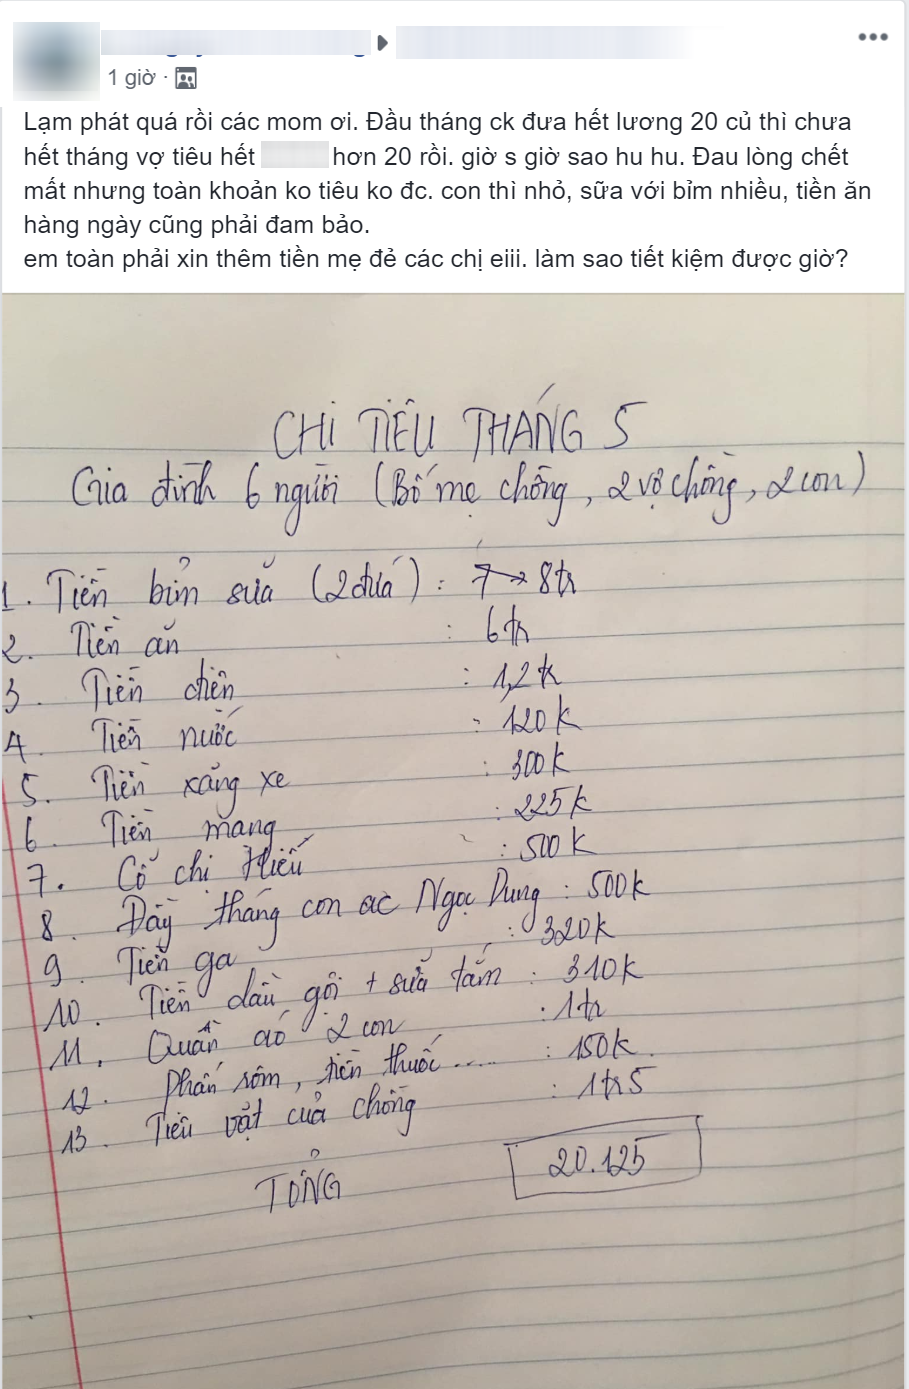 1 giờ ·
Lạm phát quá rồi các mom ơi. Đầu tháng ck đưa hết lương 20 củ thì chưa
hết tháng vợ tiêu hết hơn 20 rồi. giờ s giờ sao hu hu. Đau lòng chết
mất nhưng toàn khoản ko tiêu ko đc. con thì nhỏ, sữa với bỉm nhiều, tiền ăn
hàng ngày cũng phải đam bảo.
em toàn phải xin thêm tiền mẹ đẻ các chị eiii. làm sao tiết kiệm được giờ?
CHI TIÊU THÁNG 5
Gia đình 6 người (Bố mẹ chồng, 2 vợ chồng, 2 con)
1. Tiền bỉm sữa (2 đứa) : 7 → 8tr
2. Tiền ăn : 6tr
3. Tiền điện : 1,2tr
4. Tiền nước : 120k
5. Tiền xăng xe : 300k
6. Tiền mạng : 225k
7. Cỗ chị Hiếu : 500k
8. Đầy tháng con ac Ngọc Dung : 500k
9. Tiền ga : 320k
10. Tiền dầu gội + sữa tắm : 310k
11. Quần áo 2 con : 1tr
12. Phấn rôm, tiền thuốc..... : 150k
13. Tiêu vặt của chồng : 1tr5
TỔNG 20.125